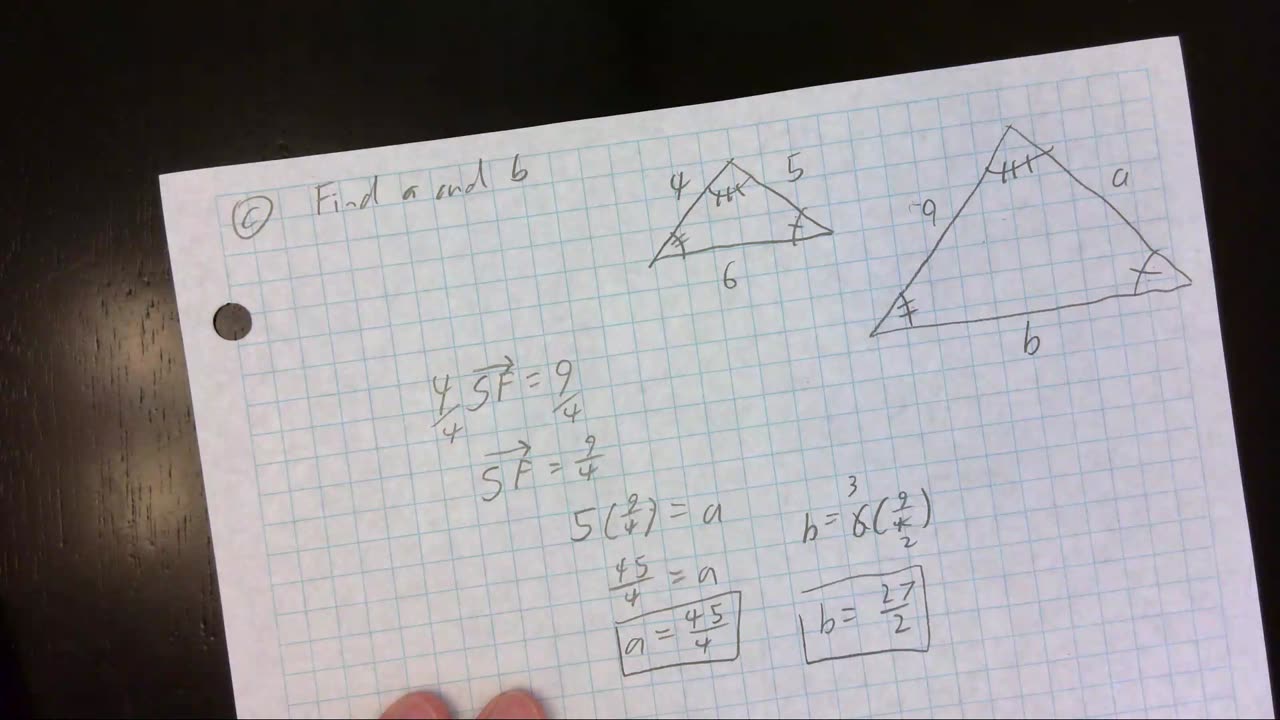 c Find a and b
4 5
6
9 a
b
4/4 SF = 9/4
SF = 9/4
5(9/4) = a
45/4 = a
a = 45/4
3
b = 6(9/4)
2
b = 27/2